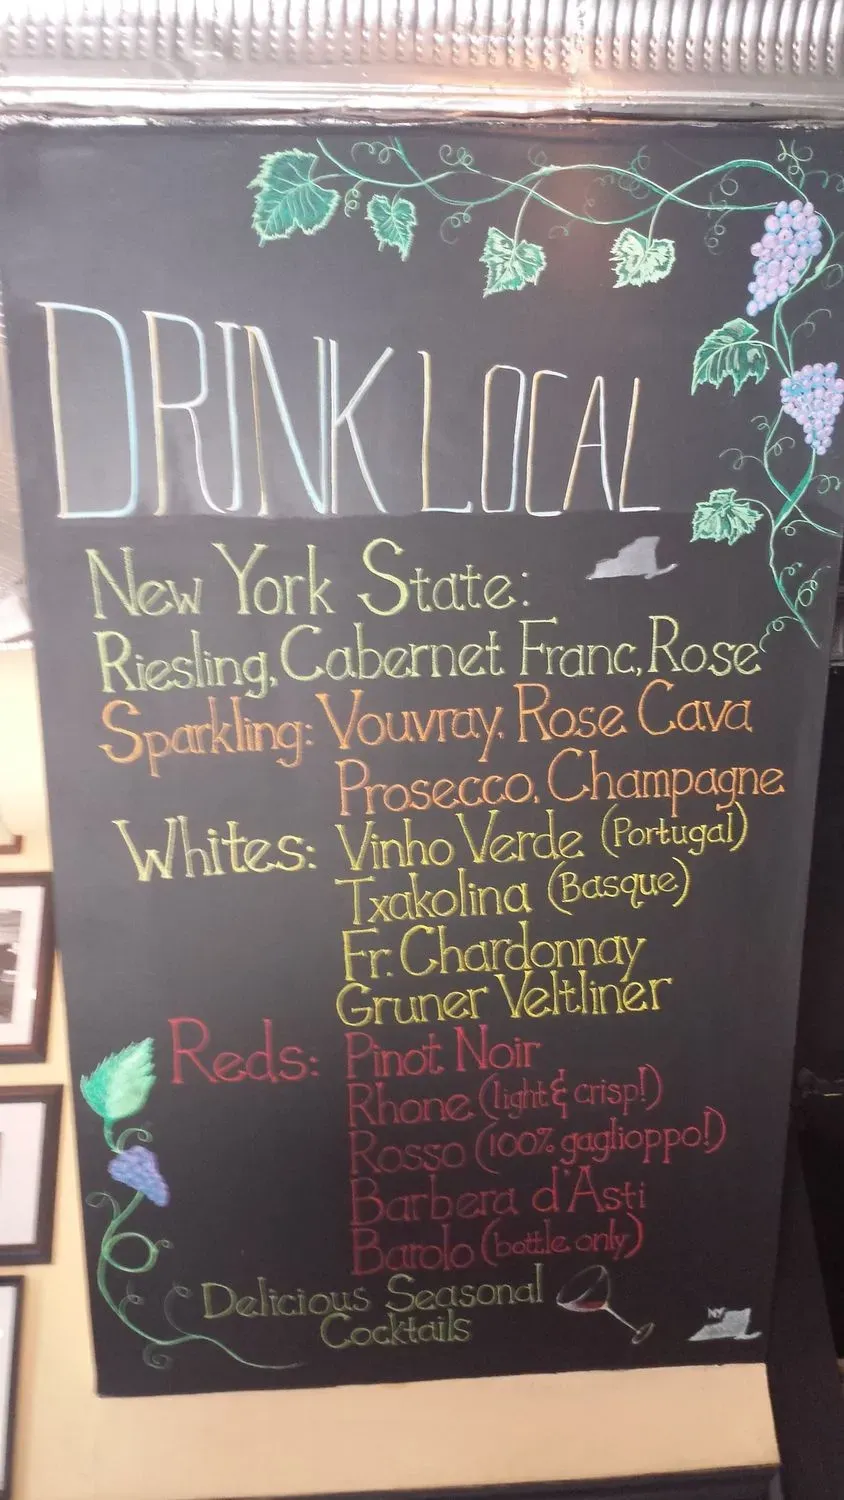 DRINK LOCAL
New York State:
Riesling, Cabernet Franc, Rose
Sparkling: Vouvray, Rose Cava
Prosecco, Champagne
Whites: Vinho Verde (Portugal)
Txakolina (Basque)
Fr. Chardonnay
Gruner Veltliner
Reds: Pinot Noir
Rhone (light & crisp!)
Rosso (100% gaglioppo!)
Barbera d'Asti
Barolo (bottle only)
Delicious Seasonal
Cocktails
NY